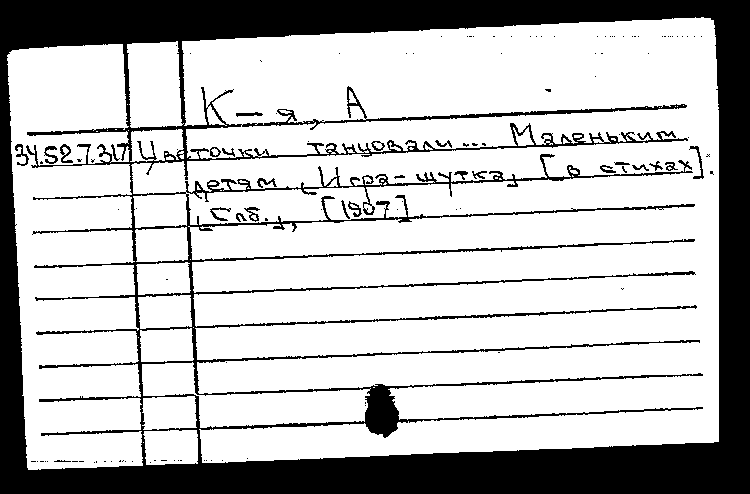 К-я, А
34.52.7.317 Цветочки танцовали... Маленьким
детям. [Игра-шутка, [в стихах].
[Спб.], [1907].